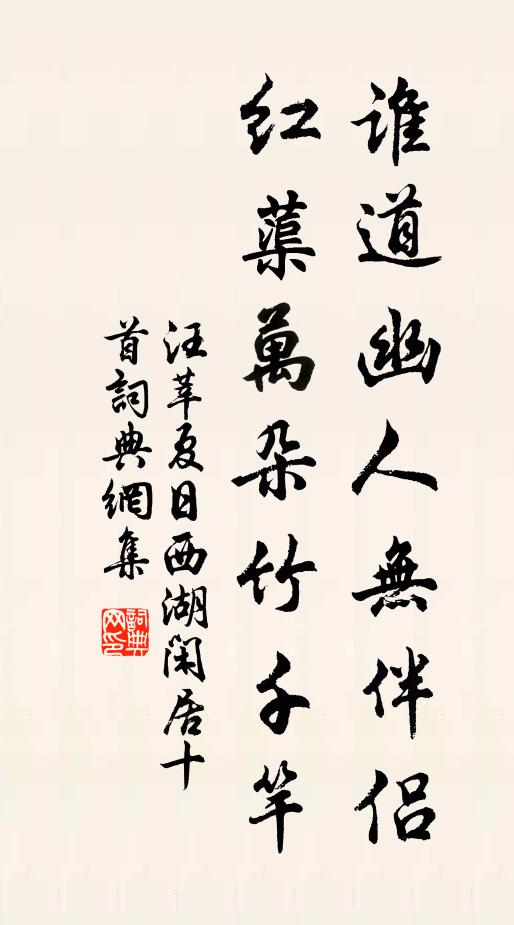 誰道幽人無伴侣
紅蕖萬朵竹千竿
汪莘夏日西湖閑居十
首詞典網集
詞典
网印